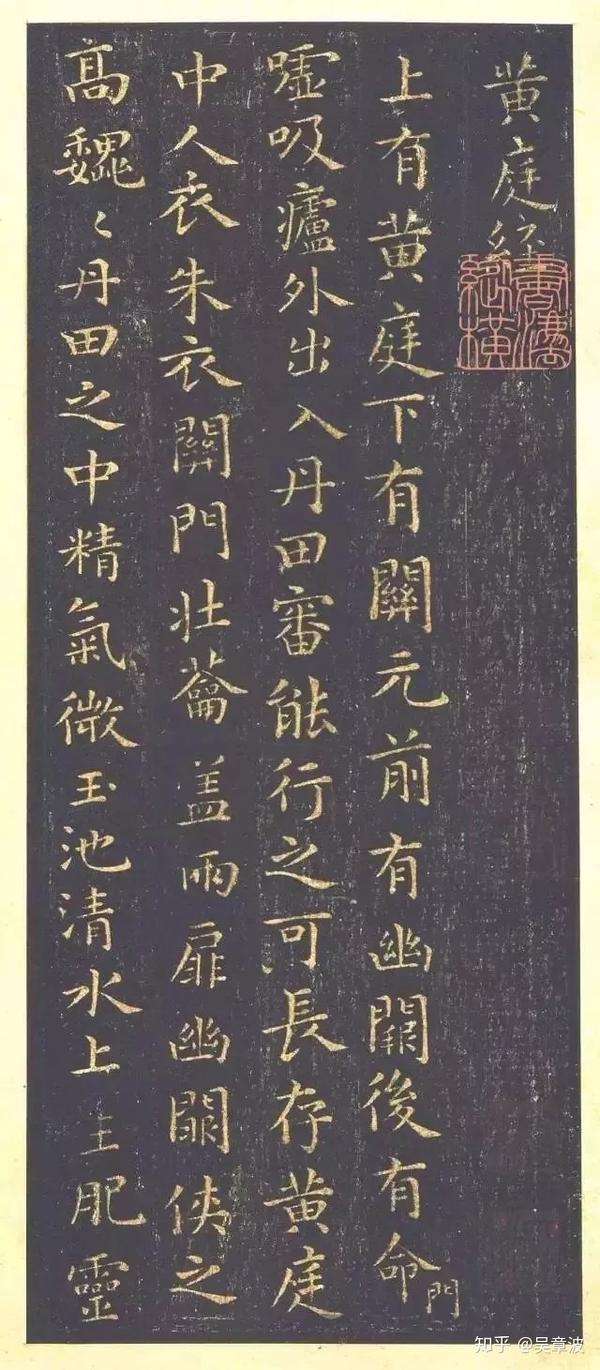 黃庭經
上有黃庭下有關元前有幽闕後有命門
噓吸廬外出入丹田審能行之可長存黃庭
中人衣朱衣關門壯蘥蓋兩扉幽闕俠之
高魏〻丹田之中精氣微玉池清水上生肥靈
知乎 @吴章波